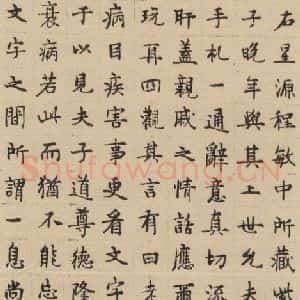 右星源程敏中所藏紫
子晚年與其上世允夫
手札一通辭意真切流
肝蓋親戚之情話應爾
玩再四觀其言有曰老
病目疾害事更看文字
于以見夫子道尊德隆
衰病若此而猶不能忘
文字之間所謂一息尚
Shufawang.CN